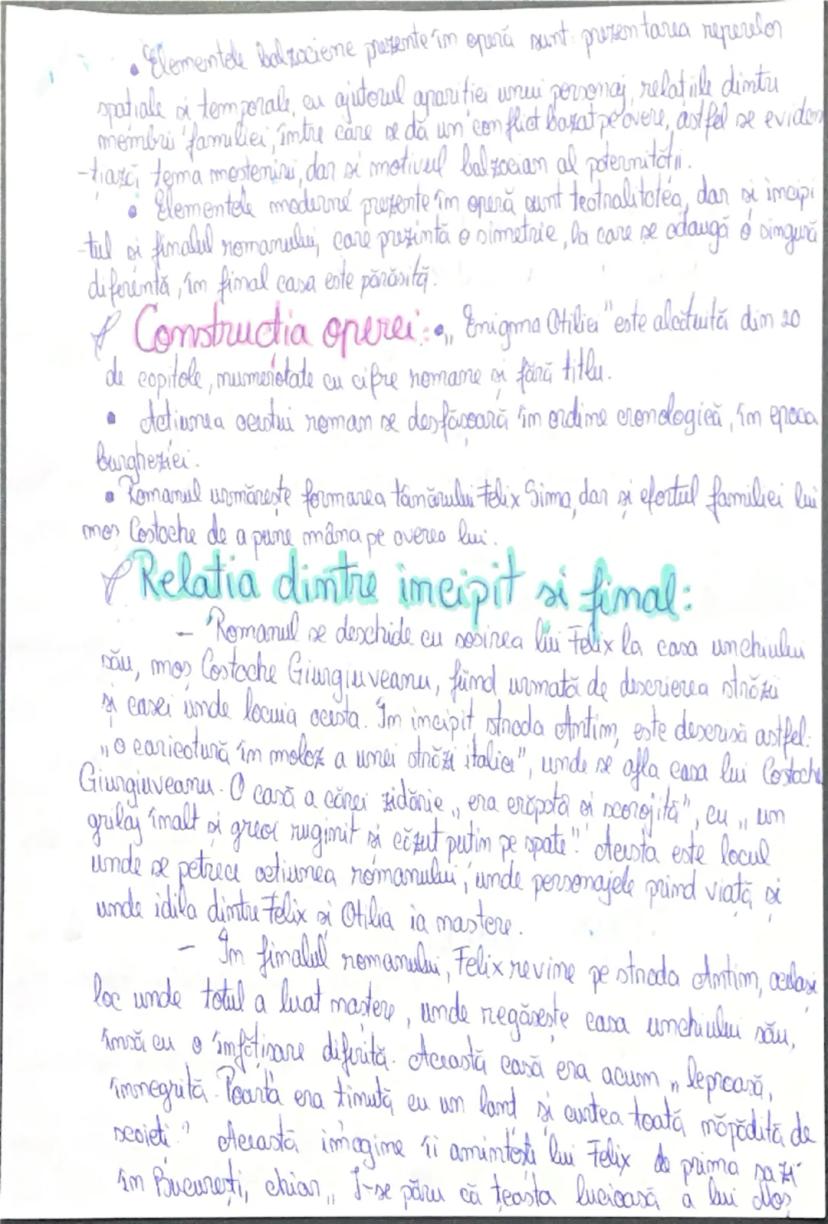 • Elementele balzaciene prezente în operă sunt: prezentarea reperelor
spațiale și temporale, cu ajutorul apariției unui personaj, relațiile dintre
membrii familiei, între care se dă un conflict bazat pe avere, astfel se eviden
-țiază, tema moștenirii, dar și motivul balzacian al paternității.
• Elementele moderne prezente în operă sunt teatralitatea, dar și incipi
-tul și finalul romanului, care prezintă o simetrie, la care se adaugă o singură
diferență, în final casa este părăsită.
Construcția operei: • „Enigma Otiliei" este alcătuită din 20
de capitole, numerotate cu cifre romane și fără titlu.
• Acțiunea acestui roman se desfășoară în ordine cronologică, în epoca
burgheziei.
• Romanul urmărește formarea tânărului Felix Sima, dar și efortul familiei lui
moș Costache de a pune mâna pe averea lui.
Relatia dintre incipit si final:
– Romanul se deschide cu sosirea lui Felix la casa unchiului
său, moș Costache Giurgiuveanu, fiind urmată de descrierea străzii
și casei unde locuia acesta. În incipit strada Antim, este descrisă astfel:
„o caricatură în moloz a unei străzi italice", unde se afla casa lui Costache
Giurgiuveanu. O casă a cărei zidărie „era crăpată și scorojită", cu „un
grilaj înalt și greoi ruginit și căzut puțin pe spate". Acesta este locul
unde se petrece acțiunea romanului, unde personajele prind viață și
unde idila dintre Felix și Otilia ia naștere.
– În finalul romanului, Felix revine pe strada Antim, același
loc unde totul a luat naștere, unde regăsește casa unchiului său,
însă cu o înfățișare diferită. Această casă era acum „leproasă,
înnegrită. Poarta era ținută cu un lanț și curtea toată năpădită de
scaieți." Această imagine îi amintește lui Felix de prima sa zi
în București, chiar „I-se păru că țeasta lucioasă a lui Moș